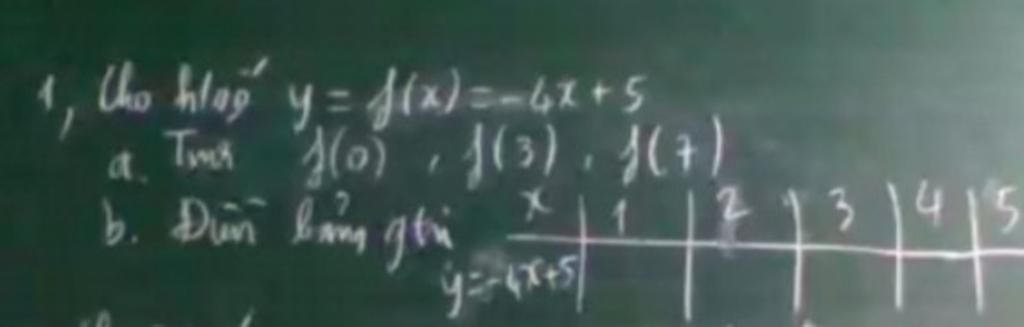 1, Cho h/số y = f(x) = -4x + 5
a. Tính f(0), f(3), f(7)
b. Điền bảng gtrị x 1 2 3 4 5
y=-4x+5